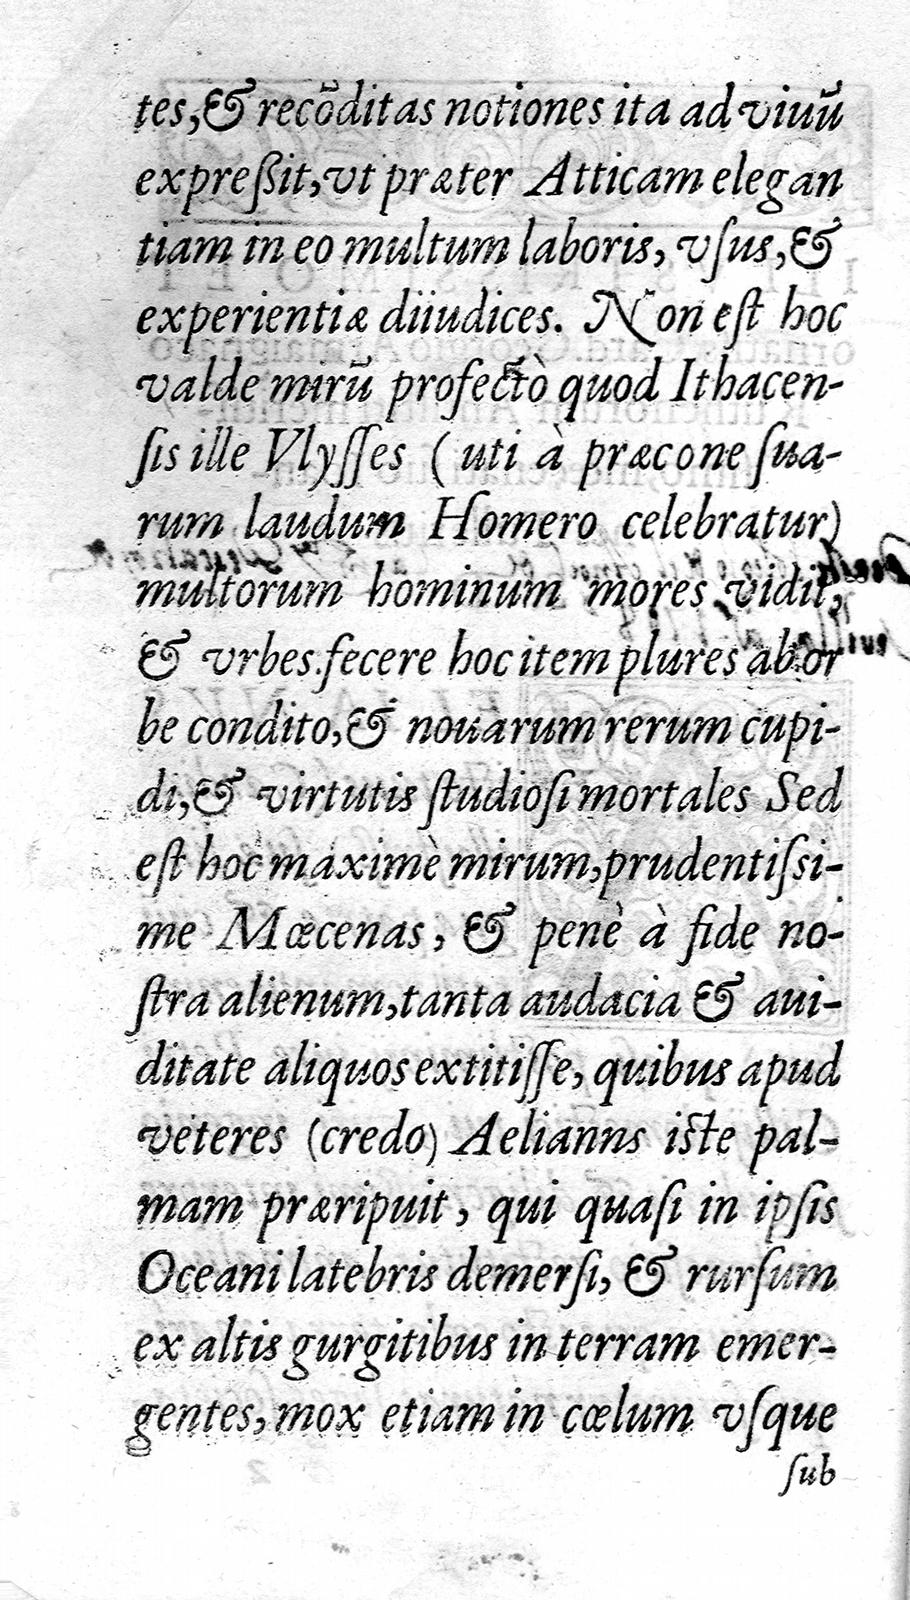 tes,& recõditas notiones ita ad viuũ
expreßit,vt præter Atticam elegan
tiam in eo multum laboris, vſus,&
experientiæ diiudices. Non eſt hoc
valde mirũ profectò quod Ithacen-
ſis ille Vlyſſes ( uti à præcone ſua-
rum laudum Homero celebratur)
multorum hominum mores vidit,
& vrbes.fecere hoc item plures ab or
be condito,& nouarum rerum cupi-
di,& virtutis ſtudioſi mortales Sed
eſt hoc maximè mirum,prudentiſsi-
me Mœcenas, & penè à fide no-
ſtra alienum,tanta audacia & aui-
ditate aliquos extitiſſe, quibus apud
veteres (credo) Aelianns iſte pal-
mam præripuit, qui quaſi in ipſis
Oceani latebris demerſi, & rurſum
ex altis gurgitibus in terram emer-
gentes, mox etiam in cœlum vſque
ſub